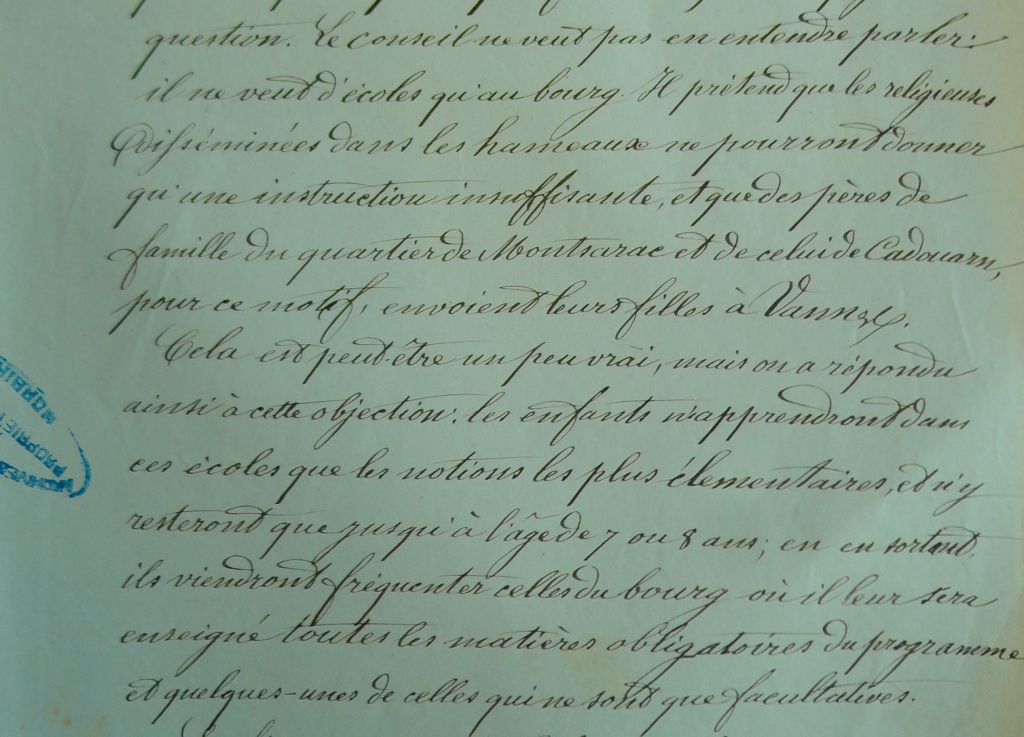 question. Le conseil ne veut pas en entendre parler:
il ne veut d'écoles qu'au bourg. Il prétend que les religieuses
disséminées dans les hameaux ne pourront donner
qu'une instruction insuffisante, et que des pères de
famille du quartier de Montsarac et de celui de Cadouarn,
pour ce motif, envoient leurs filles à Vannes.
Cela est peut-être un peu vrai, mais on a répondu
ainsi à cette objection: les enfants n'apprendront dans
ces écoles que les notions les plus élementaires, et n'y
resteront que jusqu'à l'âge de 7 ou 8 ans; en en sortant
ils viendront fréquenter celles du bourg où il leur sera
enseigné toutes les matières obligatoires du programme
et quelques-unes de celles qui ne sont que facultatives.
ARCHIVES
PROPRIÉT
MORBIH